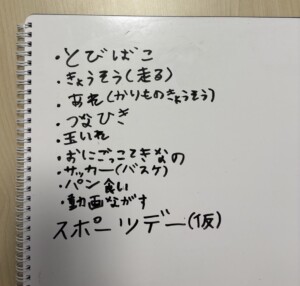 ・とびばこ
・きょうそう(走る)
・あれ(かりものきょうそう)
・つなひき
・玉いれ
・おにごっこてきなの
・サッカー(バスケ)
・パン食い
・動画ながす
スポーツデー(仮)